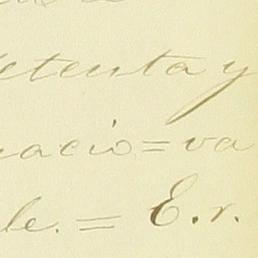 etenta y
nacio=va
le. = E. r.